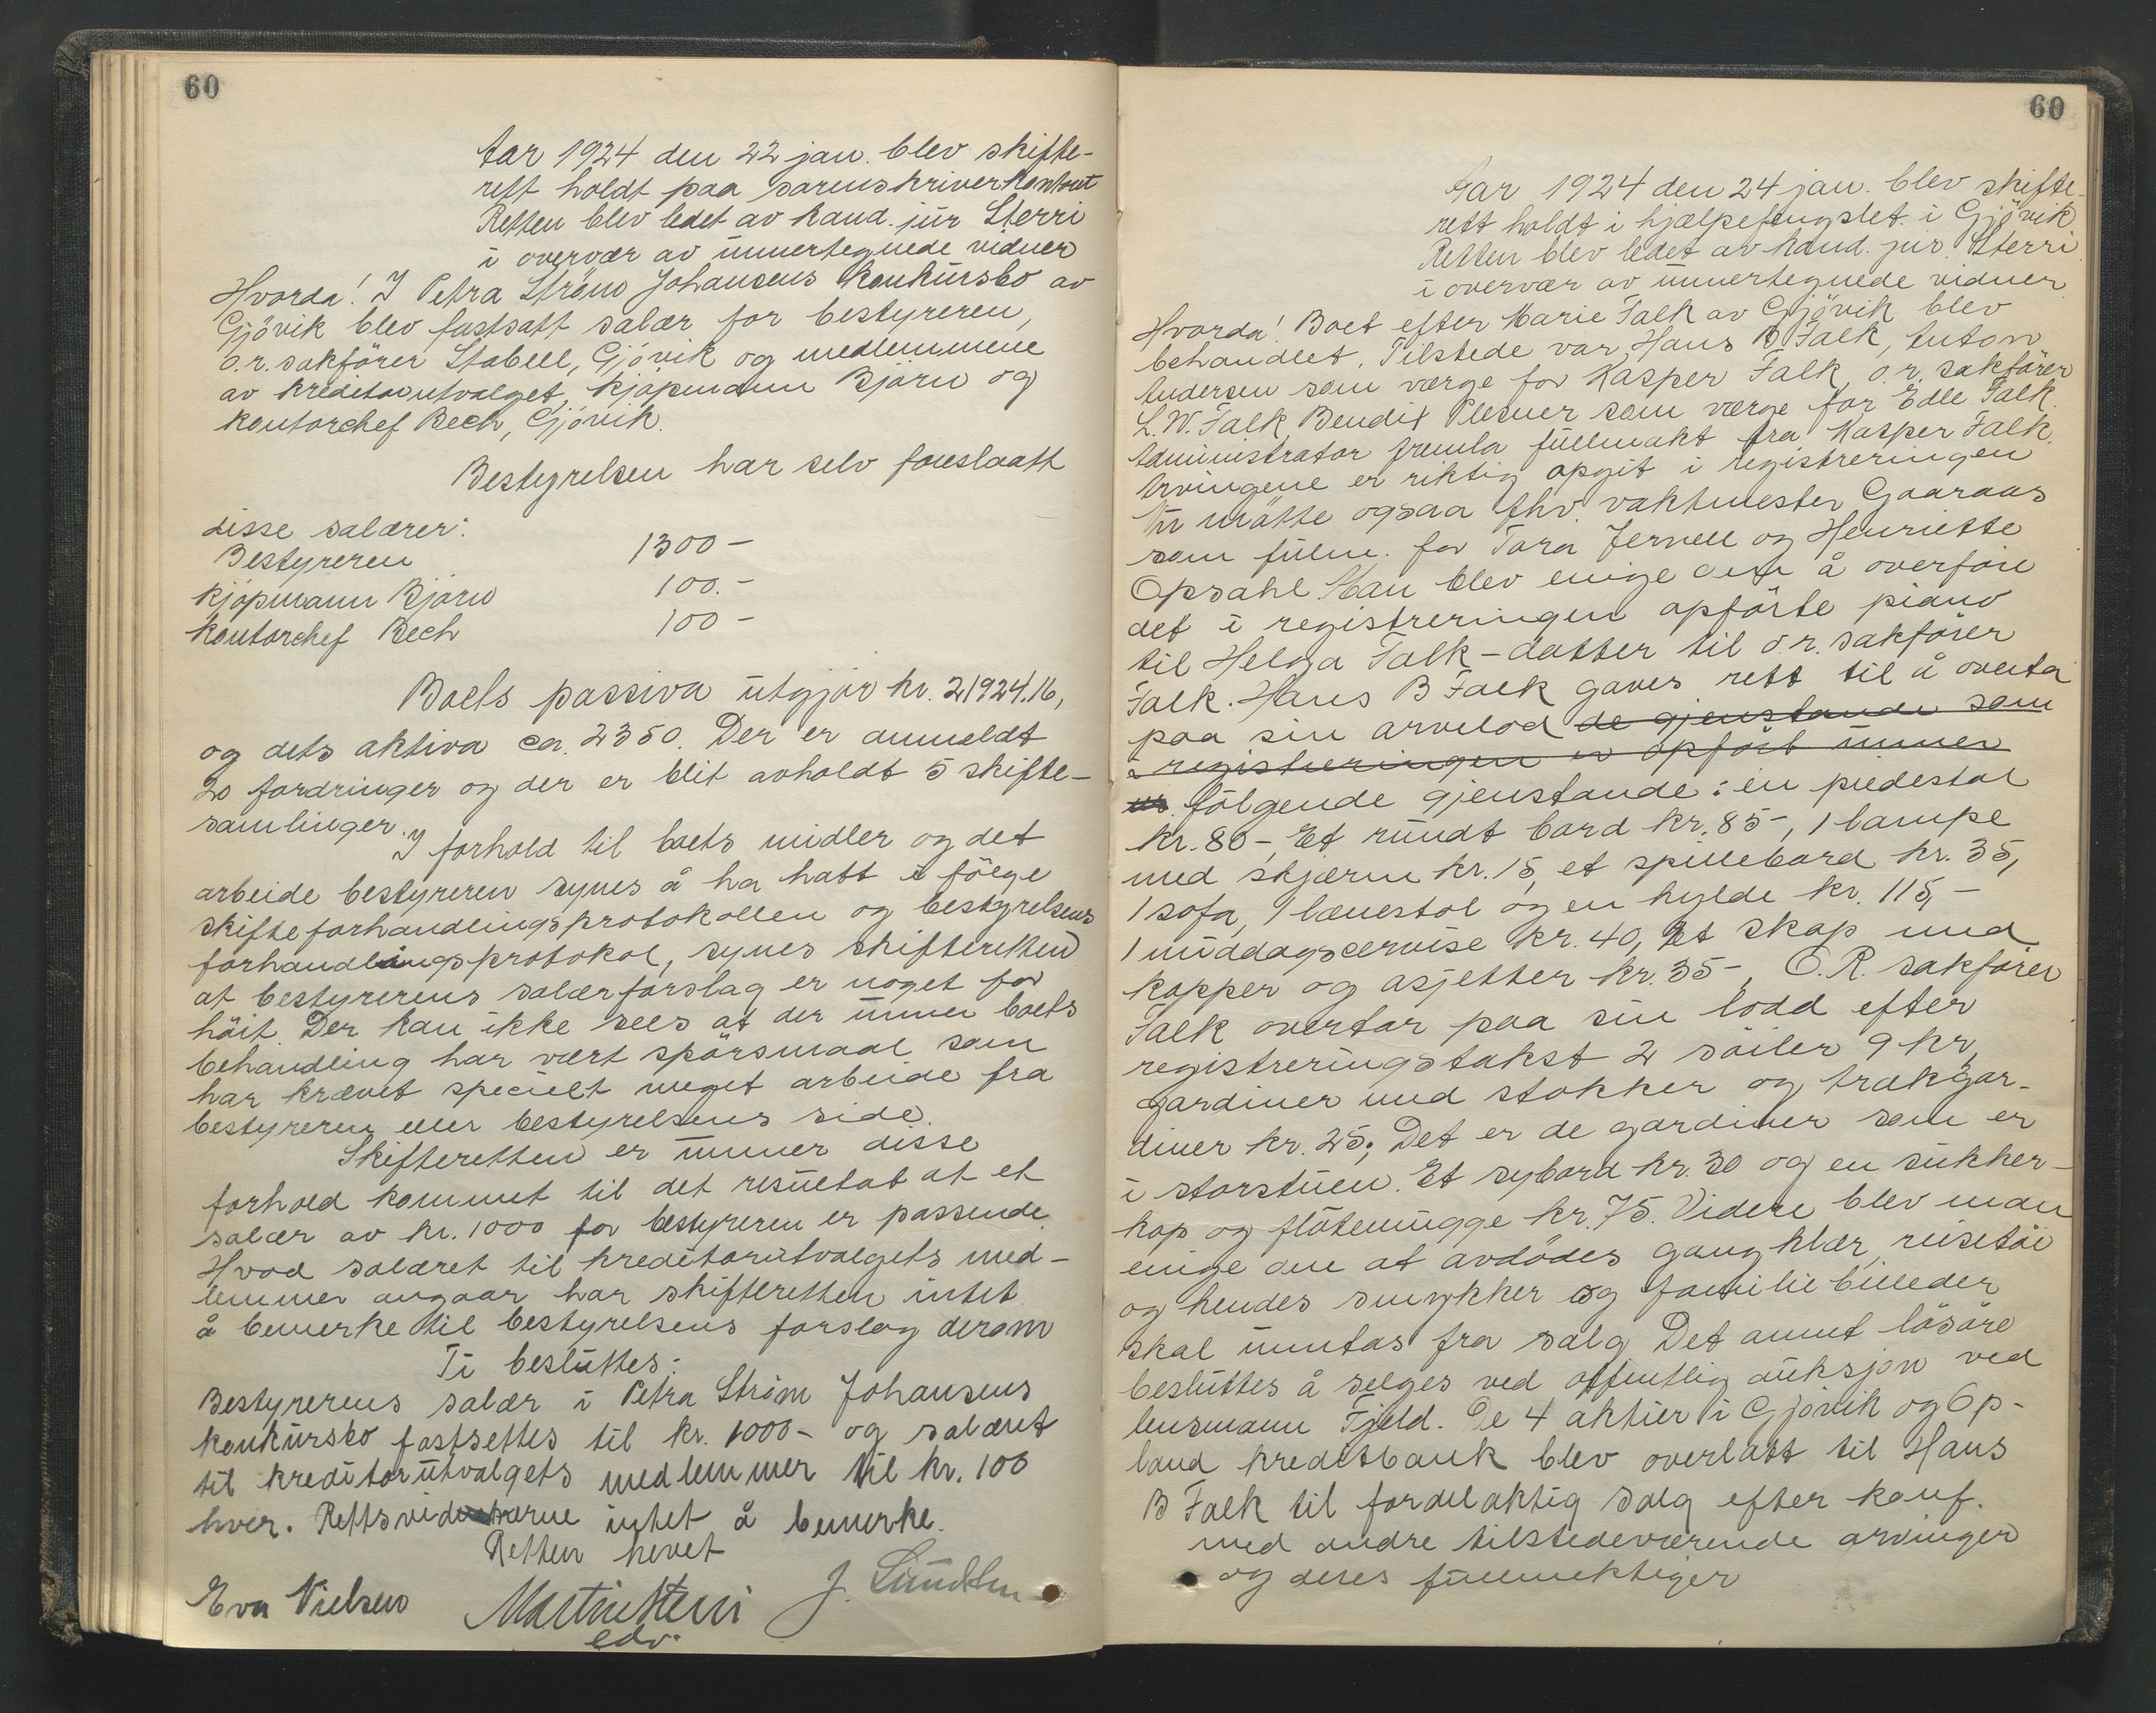 60
Aar 1924 den 22 jan. blev skifte-
rett holdt paa sorenskriverkontoret
Retten blev ledet av kand. jur Sterri
i overvær av unnertegnede vidner
Hvorda! I Petra Strøm Johansens konkursbo av
Gjövik blev fastsatt salær for bestyreren,
o.r. sakförer Stabell, Gjövik og medlemmene
av kreditorutvalget, kjöpmann Björn og
kontorchef Bech, Gjövik.
Bestyrelsen har selv foreslaatt
disse salærer:
Bestyreren 1300-
kjöpmann Björn 100.-
kontorchef Bech 100-
Boets passiva utgjör kr. 21924.16,
og dets aktiva ca. 2350. Der er anmeldt
20 fordringer og der er blit avholdt 5 skifte-
samlinger.
I forhold til boets midler og det
arbeide bestyreren synes å ha hatt i følge
skifteforhandlingsprotokollen og bestyrelsens
forhandlingsprotokol, synes skifteretten
at bestyrerens salærforslag er noget for
höit. Der kan ikke sees at der unner boets
behandling har vært spörsmaal som
har krævet specielt meget arbeide fra
bestyreren eller bestyrelsens side.
Skifteretten er unner disse
forhold kommet til det resultat at et
salær av kr. 1000 for bestyreren er passende.
Hvad salæret til kreditorutvalgets med-
lemmer angaar har skifteretten intet
å bemerke til bestyrelsens forslag derom
Ti besluttes:
Bestyrerens salær i Petra Ström Johansens
konkursbo fastsettes til kr. 1000- og salæret
til kreditorutvalgets medlemmer til kr. 100
hver. Rettsvidnerne intet å bemerke.
Retten hevet
Eva Nielsen Martin Sterri J. Lundh
edv.
60
Aar 1924 den 24 jan. blev skifte-
rett holdt i hjælpefengslet i Gjövik
Retten blev ledet av kand. jur. Sterri
i overvær av unnertegnede vidner
Hvorda! Boet efter Marie Falk av Gjövik blev
behandlet. Tilstede var Hans B Falk, Anton
Andersen som værge for Kasper Falk, o.r. sakförer
L.W. Falk, Bendix Plesner som værge for Edle Falk.
Administrator fremla fullmakt fra Kasper Falk.
Arvingene er riktig opgit i registreringen
Der mötte ogsaa fhv vaktmester Gaaraas
som fulm. for Tora Jervell og Henriette
Opsahl. Man blev enige om å overföre
det i registreringen opförte piano
til Helga Falk - datter til o.r. sakförer
Falk. Hans B Falk gaves rett til å overta
paa sin arvelod de gjenstande som
i registreringen er opfört unner
følgende gjenstande: en piedestal
kr. 80-, Et rundt bord kr. 85-, 1 lampe
med skjærm kr. 15, et spillebord kr. 35,
1 sofa, 1 lænestol og en hylde kr. 115,-
1 middagservise kr. 40, Et skap med
kopper og asjetter kr. 35-, O.R. sakförer
Falk overtar paa sin lodd efter
registreringstakst 2 söiler 9 kr,
gardiner med stokker og trækgar-
diner kr. 25; Det er de gardiner som er
i storstuen. Et sybord kr. 30 og en sukker-
kop og flötemugge kr. 75. Videre blev man
enige om at avdödes gangklær, reisetöi
og hendes smykker og familiebilleder
skal unntas fra salg. Det annet lösöre
besluttes å selges ved offentlig auksjon ved
lensmann Fjeld. De 4 aktier i Gjövik og Op-
land kreditbank blev overlatt til Hans
B Falk til fordelaktig salg efter konf.
med andre tilstedeværende arvinger
og deres fullmektiger